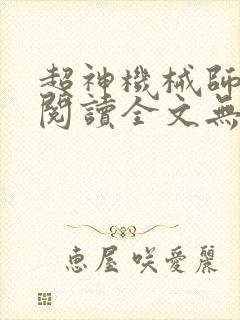 超神機械師
閱讀全文無
恵屋咲愛麗